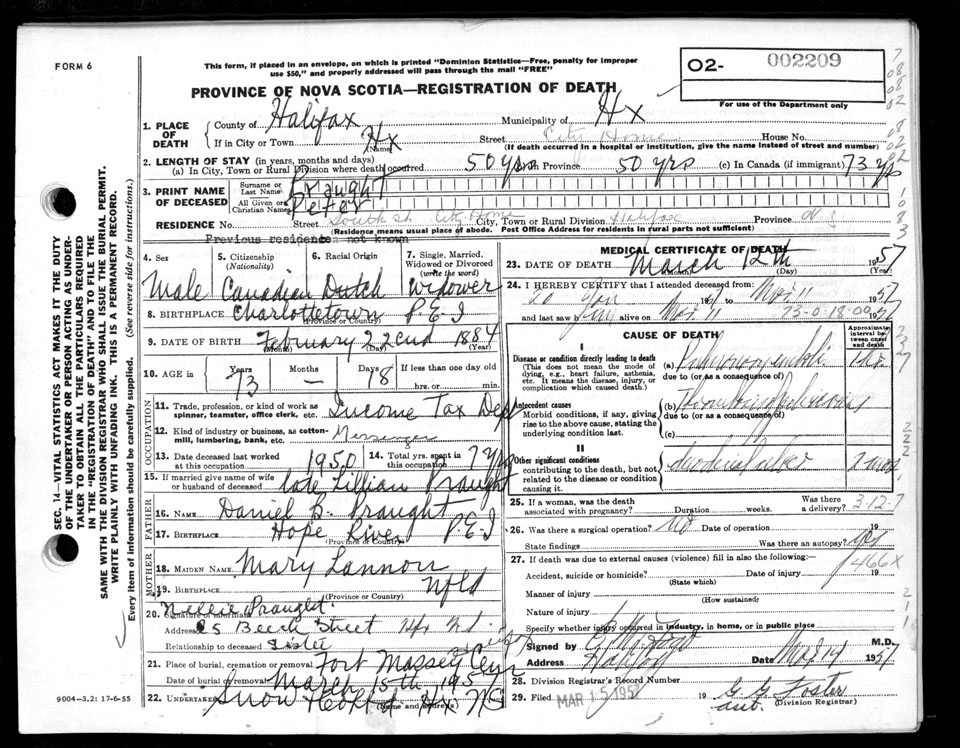 FORM 6
This form, if placed in an envelope, on which is printed "Dominion Statistics—Free, penalty for improper
use $50," and properly addressed will pass through the mail "FREE"
PROVINCE OF NOVA SCOTIA—REGISTRATION OF DEATH
O2- 002209
For use of the Department only
1. PLACE OF DEATH
County of Halifax Municipality of Hx
If in City or Town Hx Street City Home House No.
(Name) (If death occurred in a hospital or institution, give the name instead of street and number)
2. LENGTH OF STAY (in years, months and days)
(a) In City, Town or Rural Division where death occurred 50 yrs Province 50 yrs (c) In Canada (if immigrant) 73 yrs
3. PRINT NAME OF DECEASED
Surname or Last Name Praught
All Given or Christian Names Peter
RESIDENCE No. Street South St City Home City, Town or Rural Division Halifax Province N S
(Residence means usual place of abode. Post Office Address for residents in rural parts not sufficient)
Previous residence not known
4. Sex 5. Citizenship (Nationality) 6. Racial Origin 7. Single, Married, Widowed or Divorced (write the word)
Male Canadian Dutch Widower
8. BIRTHPLACE Charlottetown P.E.I
(Province or Country)
9. DATE OF BIRTH February 22nd 1884
(Month) (Day) (Year)
10. AGE in Years Months Days If less than one day old
73 — 18 hrs. or min.
OCCUPATION
11. Trade, profession, or kind of work as spinner, teamster, office clerk, etc. Income Tax Dep
12. Kind of industry or business, as cotton-mill, lumbering, bank, etc. Messenger
13. Date deceased last worked at this occupation 1950 14. Total yrs. spent in this occupation 7 yrs
15. If married give name of wife or husband of deceased late Lillian Praught
FATHER
16. NAME Daniel Praught
17. BIRTHPLACE Hope River P.E.I
(Province or Country)
MOTHER
18. MAIDEN NAME Mary Lannon
19. BIRTHPLACE Nfld
(Province or Country)
20. Signature of informant Nellie Praught
Address 25 Beech Street Hfx N.S
Relationship to deceased Sister
21. Place of burial, cremation or removal Fort Massey Cem
Date of burial or removal March 15th 1957
22. UNDERTAKER Snow Hx NS
(Name and address)
MEDICAL CERTIFICATE OF DEATH
23. DATE OF DEATH March 12th 1957
(Day) (Year)
24. I HEREBY CERTIFY that I attended deceased from
to Mar 11 1957
and last saw h alive on Mar 11 1957
73-0-18-00
CAUSE OF DEATH
Approximate interval between onset and death
I
Disease or condition directly leading to death
(This does not mean the mode of dying, e.g., heart failure, asthenia, etc. It means the disease, injury, or complication which caused death.)
(a)
due to (or as a consequence of)
Antecedent causes
Morbid conditions, if any, giving rise to the above cause, stating the underlying condition last.
(b)
due to (or as a consequence of)
(c)
II
Other significant conditions
contributing to the death, but not related to the disease or condition causing it.
25. If a woman, was the death associated with pregnancy? Duration weeks. Was there a delivery?
3-12-7
26. Was there a surgical operation? No Date of operation 19
State findings Was there an autopsy? yes
27. If death was due to external causes (violence) fill in also the following:—
466X
Accident, suicide or homicide? Date of injury 19
(State which)
Manner of injury
(How sustained)
Nature of injury
Specify whether injury occurred in industry, in home, or in public place
Signed by M.D.
Address Halifax Date Mar 14 1957
28. Division Registrar's Record Number
29. Filed MAR 15 1957 19 G G Foster
asst. (Division Registrar)
SEC. 14—VITAL STATISTICS ACT MAKES IT THE DUTY
OF THE UNDERTAKER OR PERSON ACTING AS UNDER-
TAKER TO OBTAIN ALL THE PARTICULARS REQUIRED
IN THE "REGISTRATION OF DEATH" AND TO FILE THE
SAME WITH THE DIVISION REGISTRAR WHO SHALL ISSUE THE BURIAL PERMIT.
WRITE PLAINLY WITH UNFADING INK. THIS IS A PERMANENT RECORD.
Every item of information should be carefully supplied. (See reverse side for instructions.)
9004-3.2: 17-6-55